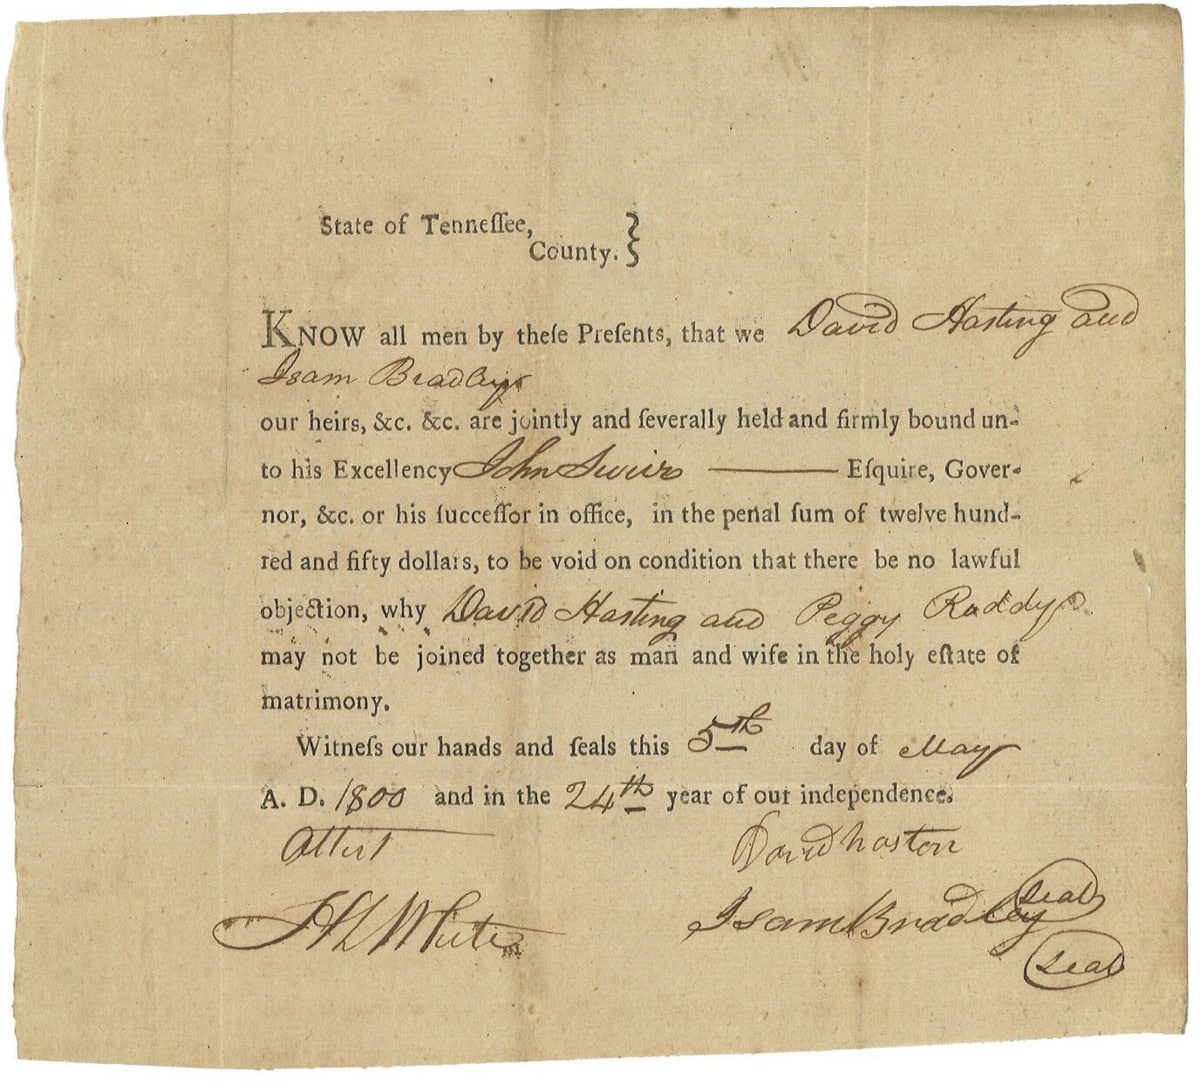 State of Tenneſſee,
County.
KNOW all men by theſe Preſents, that we David Hasting and
Isam Bradley
our heirs, &c. &c. are jointly and ſeverally held and firmly bound un-
to his Excellency John Sevier Eſquire, Gover-
nor, &c. or his ſucceſſor in office, in the penal ſum of twelve hund-
red and fifty dollars, to be void on condition that there be no lawful
objection, why David Hasting and Peggy Roddy
may not be joined together as man and wife in the holy eſtate of
matrimony.
Witneſs our hands and ſeals this 5th day of May
A. D. 1800 and in the 24th year of our independence.
Attest David haston
Seal
H L White Isam Bradley
Seal